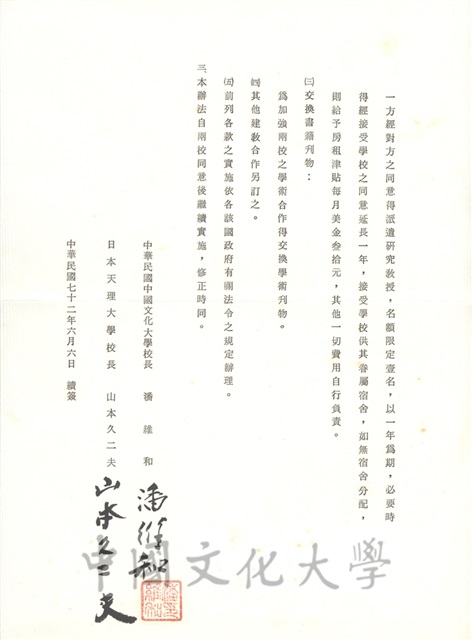 一方經對方之同意得派遣研究教授，名額限定壹名，以一年爲期，必要時
得經接受學校之同意延長一年，接受學校供其眷屬宿舍，如無宿舍分配，
則給予房租津貼每月美金叁拾元，其他一切費用自行負責。
㈢交換書籍刊物：
爲加強兩校之學術合作得交換學術刊物。
㈣其他建教合作另訂之。
㈤前列各款之實施依各該國政府有關法令之規定辦理。
三、本辦法自兩校同意後繼續實施，修正時同。
中華民國中國文化大學校長　潘　維　和
潘維和
日本天理大學校長　山本久二夫
山本久二夫
中華民國七十二年六月六日　續簽
中國文化大學